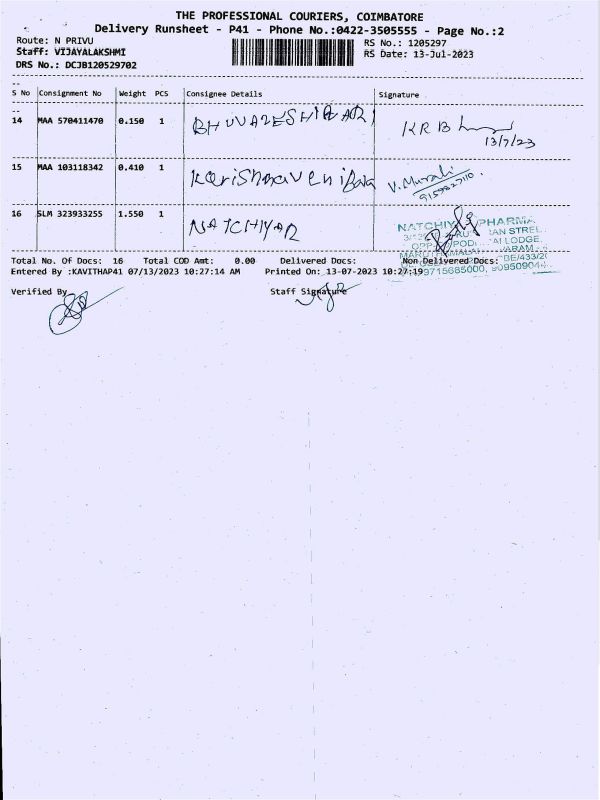 THE PROFESSIONAL COURIERS, COIMBATORE
Delivery Runsheet - P41 - Phone No.:0422-3505555 - Page No.:2
Route: N PRIVU
RS No.: 1205297
Staff: VIJAYALAKSHMI
RS Date: 13-Jul-2023
DRS No.: DCJB120529702
S No Consignment No Weight PCS Consignee Details Signature
14 MAA 570411470 0.150 1 BHUVANESHWARI KRB
13/7/23
15 MAA 103118342 0.410 1 V.Murali
16 SLM 323933255 1.550 1 NATCHIYAR
NATCHIY PHARMA
Total No. Of Docs: 16 Total COD Amt: 0.00 Delivered Docs: Non Delivered Docs:
Entered By :KAVITHAP41 07/13/2023 10:27:14 AM Printed On: 13-07-2023 10:27:19
Verified By Staff Signature